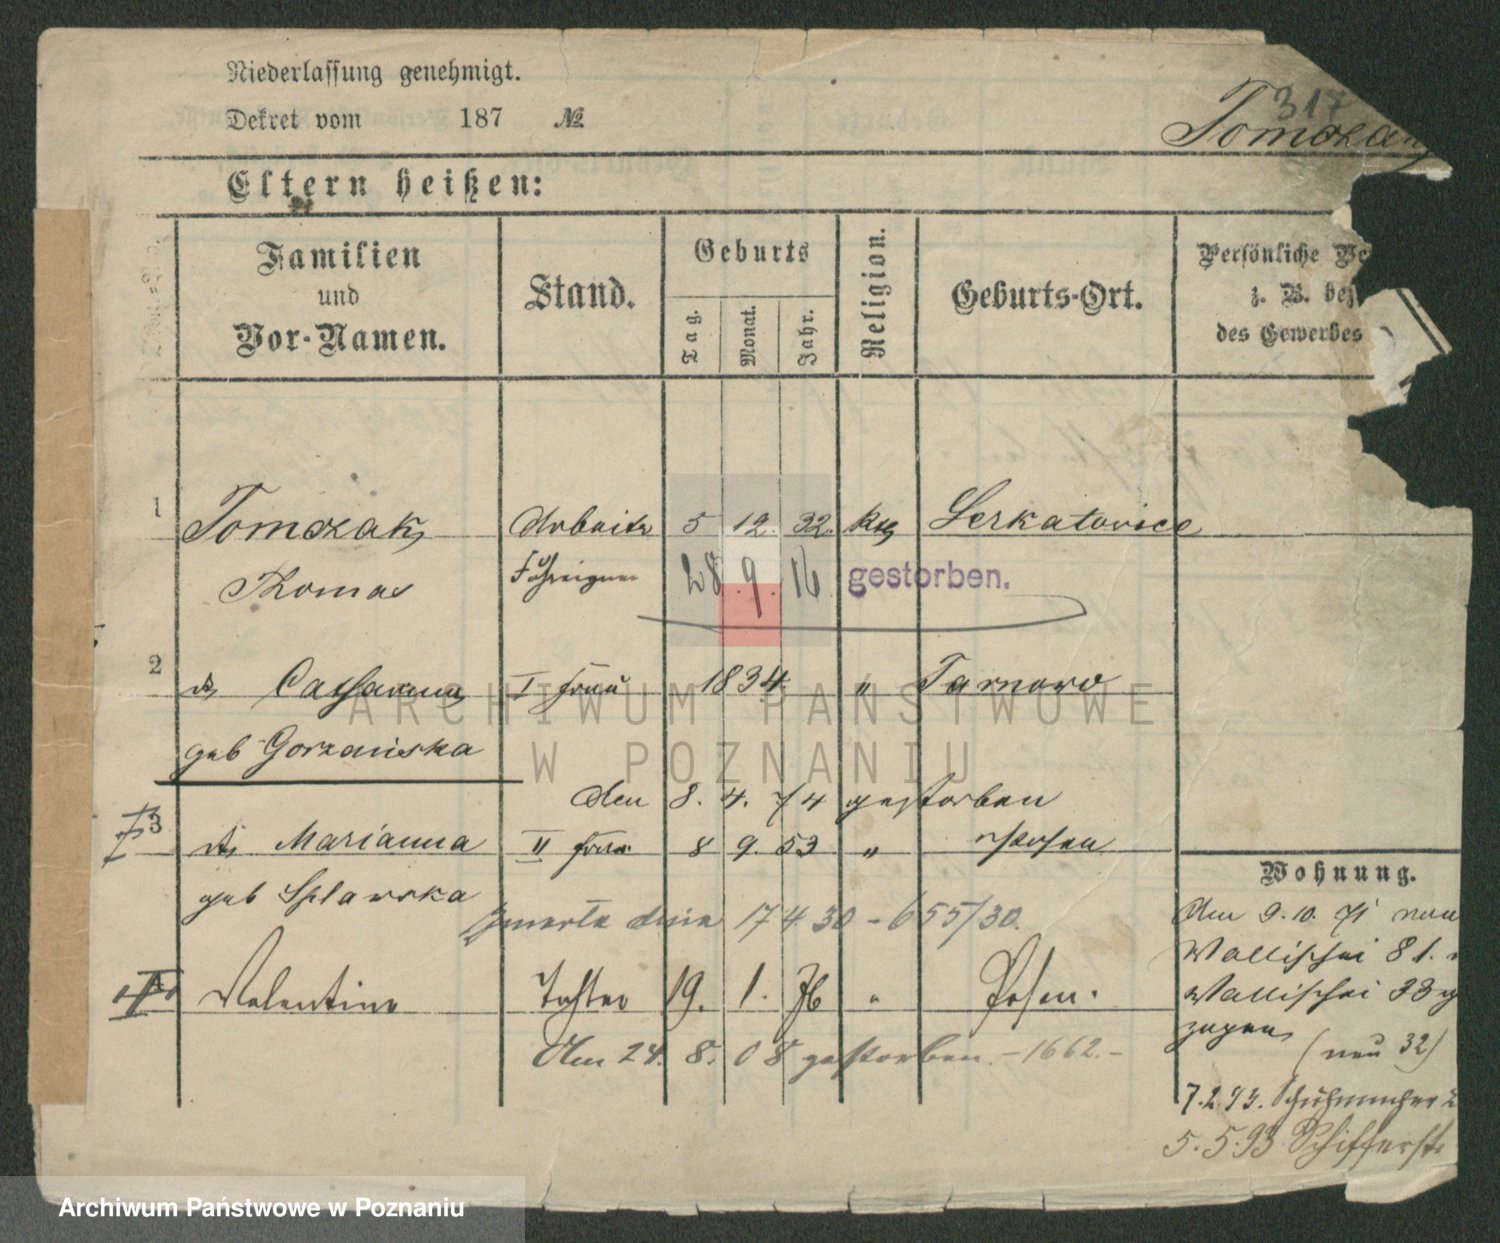 Niederlassung genehmigt.
317
Dekret vom 187 №
Tomczak
Eltern heißen:
Familien
und
Vor-Namen.
Stand.
Geburts
Tag.
Monat.
Jahr.
Religion.
Geburts-Ort.
Persönliche Ve
z. B. bez
des Gewerbes
1
Tomczak Arbeiter 5 12. 32. Kath Serkatowice
Thomas
28. 9. 16 gestorben.
2
Catharina I Frau 1834 " Tarnowo
geb Gorzańska
den 8. 4. 74 gestorben
3
Marianna II Frau 8 9. 53 " Posen
geb Splawska
zmarła dnia 17 4 30 - 655/30.
4
Valentine Tochter 19. 1. 76 " Posen.
Am 24. 8. 08 gestorben. - 1662. -
Wohnung.
Am 9.10. 71 von
Wallischei 81.
Wallischei 33
gezogen
(neu 32)
7.2.93. Schuhmacher
5.5.93 Schifferstr
ARCHIWUM PAŃSTWOWE
W POZNANIU
Archiwum Państwowe w Poznaniu